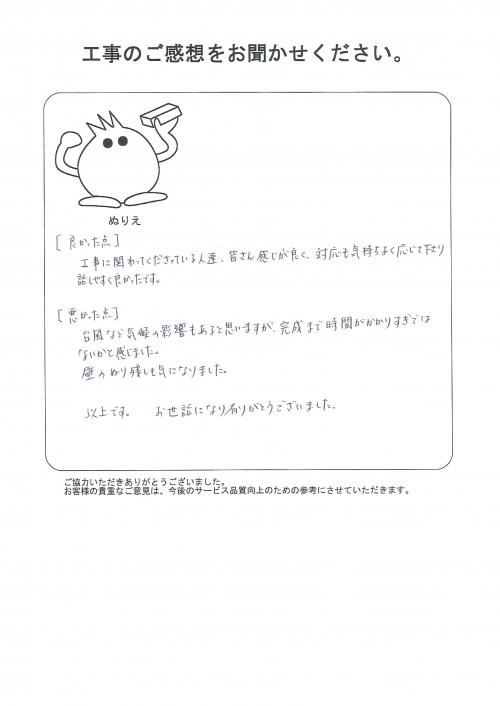 工事のご感想をお聞かせください。
ぬりえ
[良かった点]
工事に関わってくださっている人達、皆さん感じが良く、対応も気持ちよく応じて下さり
話しやすく良かったです。
[悪かった点]
台風など気候の影響もあると思いますが、完成まで時間がかかりすぎでは
ないかと感じました。
壁のぬり残しも気になりました。
以上です。 お世話になり有りがとうございました。
ご協力いただきありがとうございました。
お客様の貴重なご意見は、今後のサービス品質向上のための参考にさせていただきます。